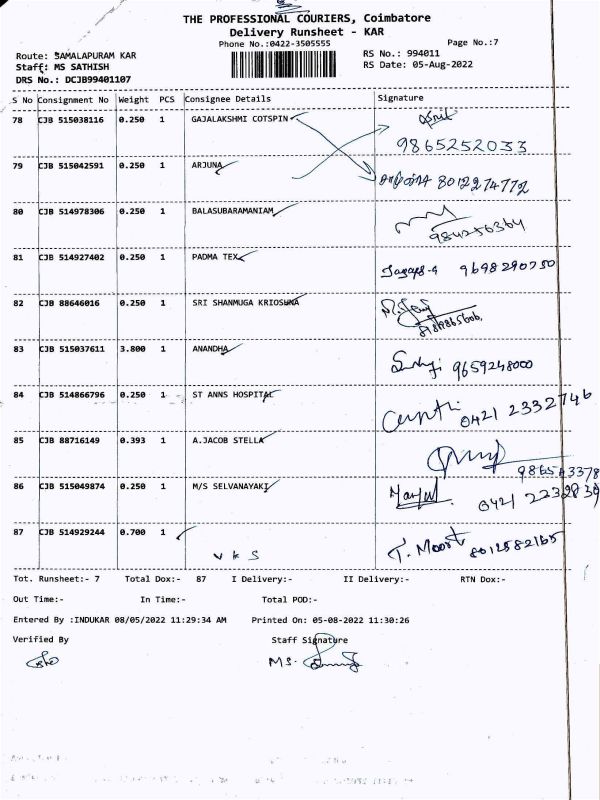 THE PROFESSIONAL COURIERS, Coimbatore
Delivery Runsheet - KAR
Phone No.:0422-3505555
Page No.:7
Route: SAMALAPURAM KAR
RS No.: 994011
Staff: MS SATHISH
RS Date: 05-Aug-2022
DRS No.: DCJB99401107
S No Consignment No Weight PCS Consignee Details Signature
78 CJB 515038116 0.250 1 GAJALAKSHMI COTSPIN
9865252033
79 CJB 515042591 0.250 1 ARJUNA 8012274772
80 CJB 514978306 0.250 1 BALASUBARAMANIAM
984256364
81 CJB 514927402 0.250 1 PADMA TEX 9698290750
82 CJB 88646016 0.250 1 SRI SHANMUGA KRIOSHNA
83 CJB 515037611 3.800 1 ANANDHA 9659248000
84 CJB 514866796 0.250 1 ST ANNS HOSPITAL 0421 2332746
85 CJB 88716149 0.393 1 A.JACOB STELLA
86 CJB 515049874 0.250 1 M/S SELVANAYAKI
87 CJB 514929244 0.700 1 T. Moort 8012582165
V K S
Tot. Runsheet:- 7 Total Dox:- 87 I Delivery:- II Delivery:- RTN Dox:-
Out Time:- In Time:- Total POD:-
Entered By :INDUKAR 08/05/2022 11:29:34 AM Printed On: 05-08-2022 11:30:26
Verified By Staff Signature
MS.